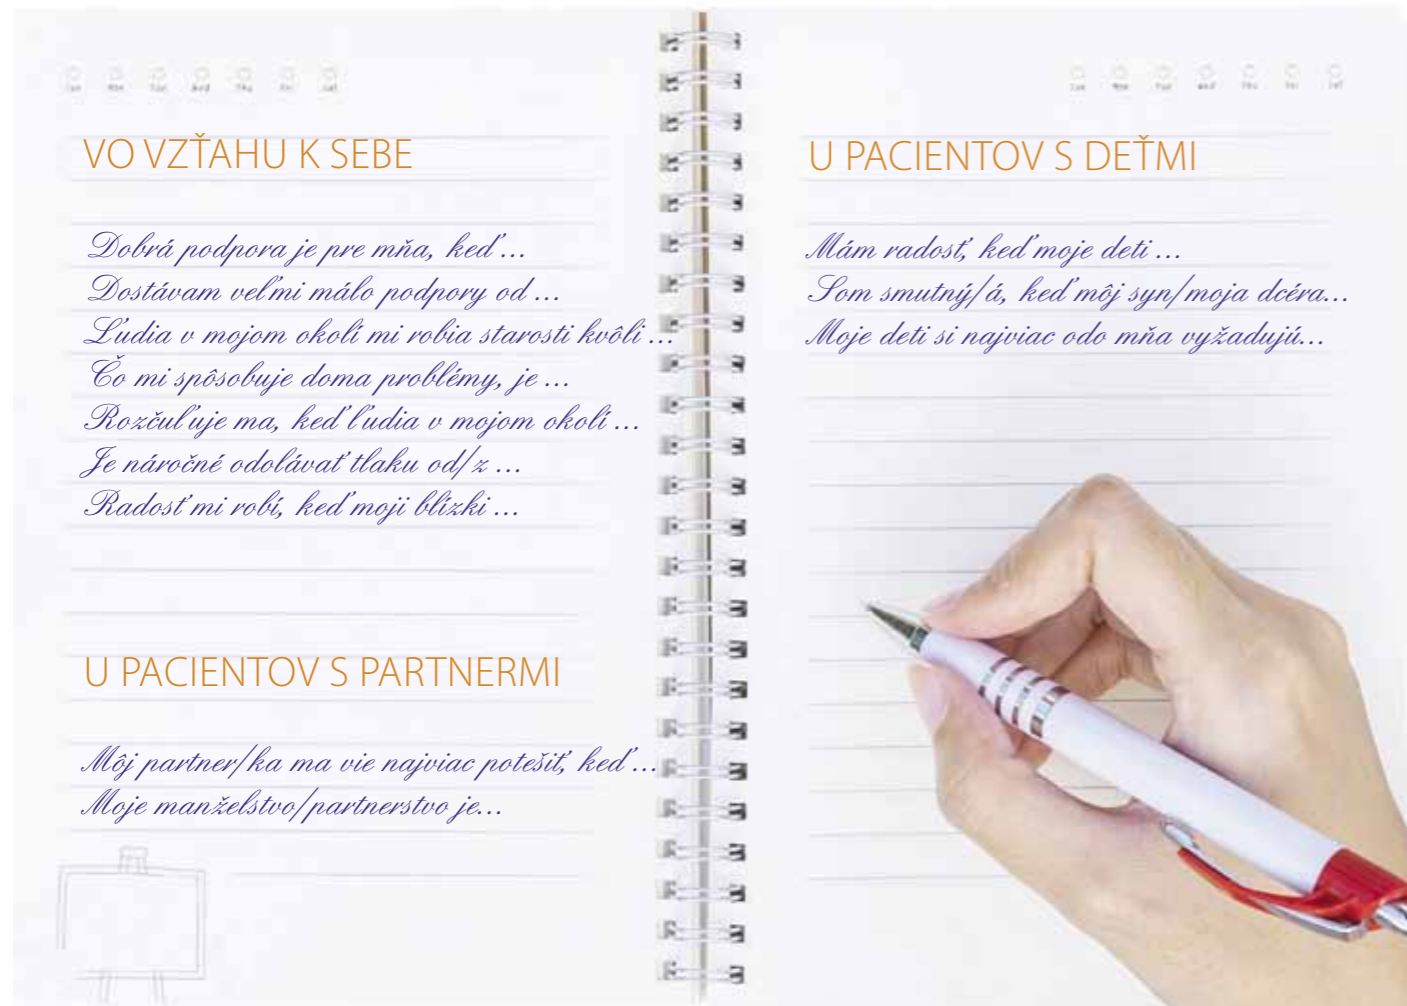 VO VZŤAHU K SEBE
Dobrá podpora je pre mňa, keď ...
Dostávam veľmi málo podpory od ...
Ľudia v mojom okolí mi robia starosti kvôli ...
Čo mi spôsobuje doma problémy, je ...
Rozčuľuje ma, keď ľudia v mojom okolí ...
Je náročné odolávať tlaku od/z ...
Radosť mi robí, keď moji blízki ...
U PACIENTOV S PARTNERMI
Môj partner/ka ma vie najviac potešiť, keď ...
Moje manželstvo/partnerstvo je...
U PACIENTOV S DEŤMI
Mám radosť, keď moje deti ...
Som smutný/á, keď môj syn/moja dcéra...
Moje deti si najviac odo mňa vyžadujú...